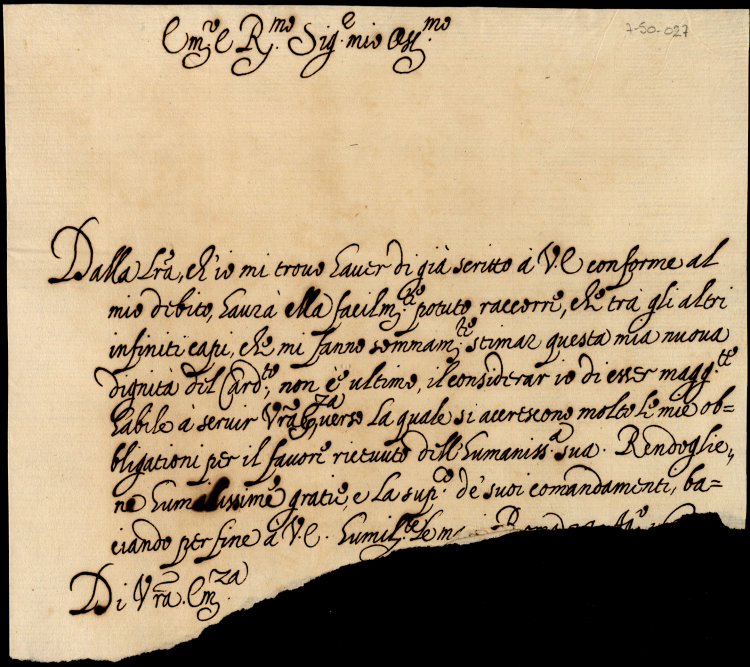 7-50-027
Em.o e R.mo Sig.e mio Oss.mo
Dalla lrã, ch'io mi trovo haver di già scritto à V.E conforme al
mio debito, havrà ella facilm.te potuto raccorre, che trà gli altri
infiniti capi, che mi fanno sommam.te stimar questa mia nuova
dignità del Card.to, non è ultimo, il considerar io di esser magg.te
habile à servir Vrã E.za, verso la quale si accrescono molto le mie ob=
bligationi per il favore ricevuto dell'humaniss.a sua. Rendoglie,,
ne humilissime gratie, e la sup.co de' suoi comandamenti, ba=
ciando per fine à V.E. humil.te le m
Di Vrã Em.za